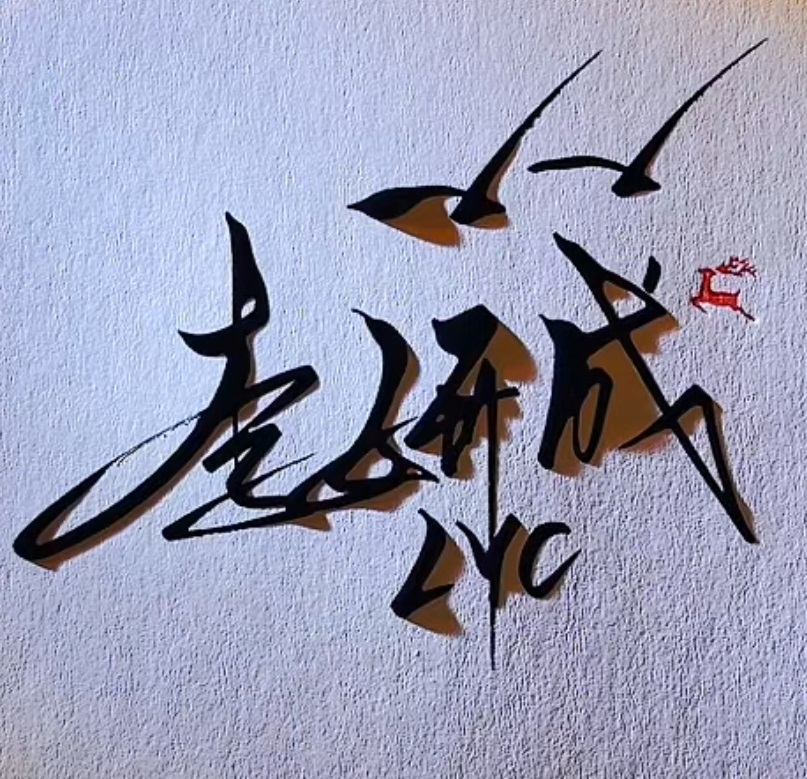 李妍成
LYC